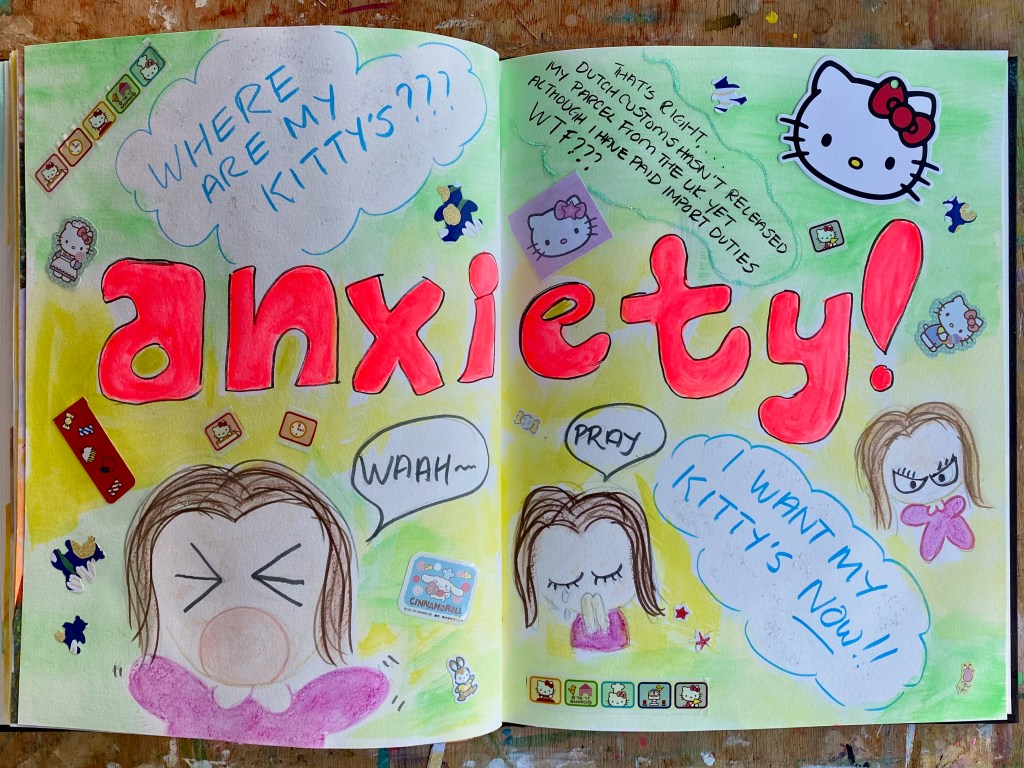 WHERE
ARE MY
KITTY'S???
THAT'S RIGHT....
DUTCH CUSTOMS HASN'T RELEASED
MY PARCEL FROM THE UK YET
ALTHOUGH I HAVE PAID IMPORT DUTIES
WTF???
anxiety!
WAAH~
PRAY
I WANT MY
KITTY'S NOW!!
CINNAMOROLL